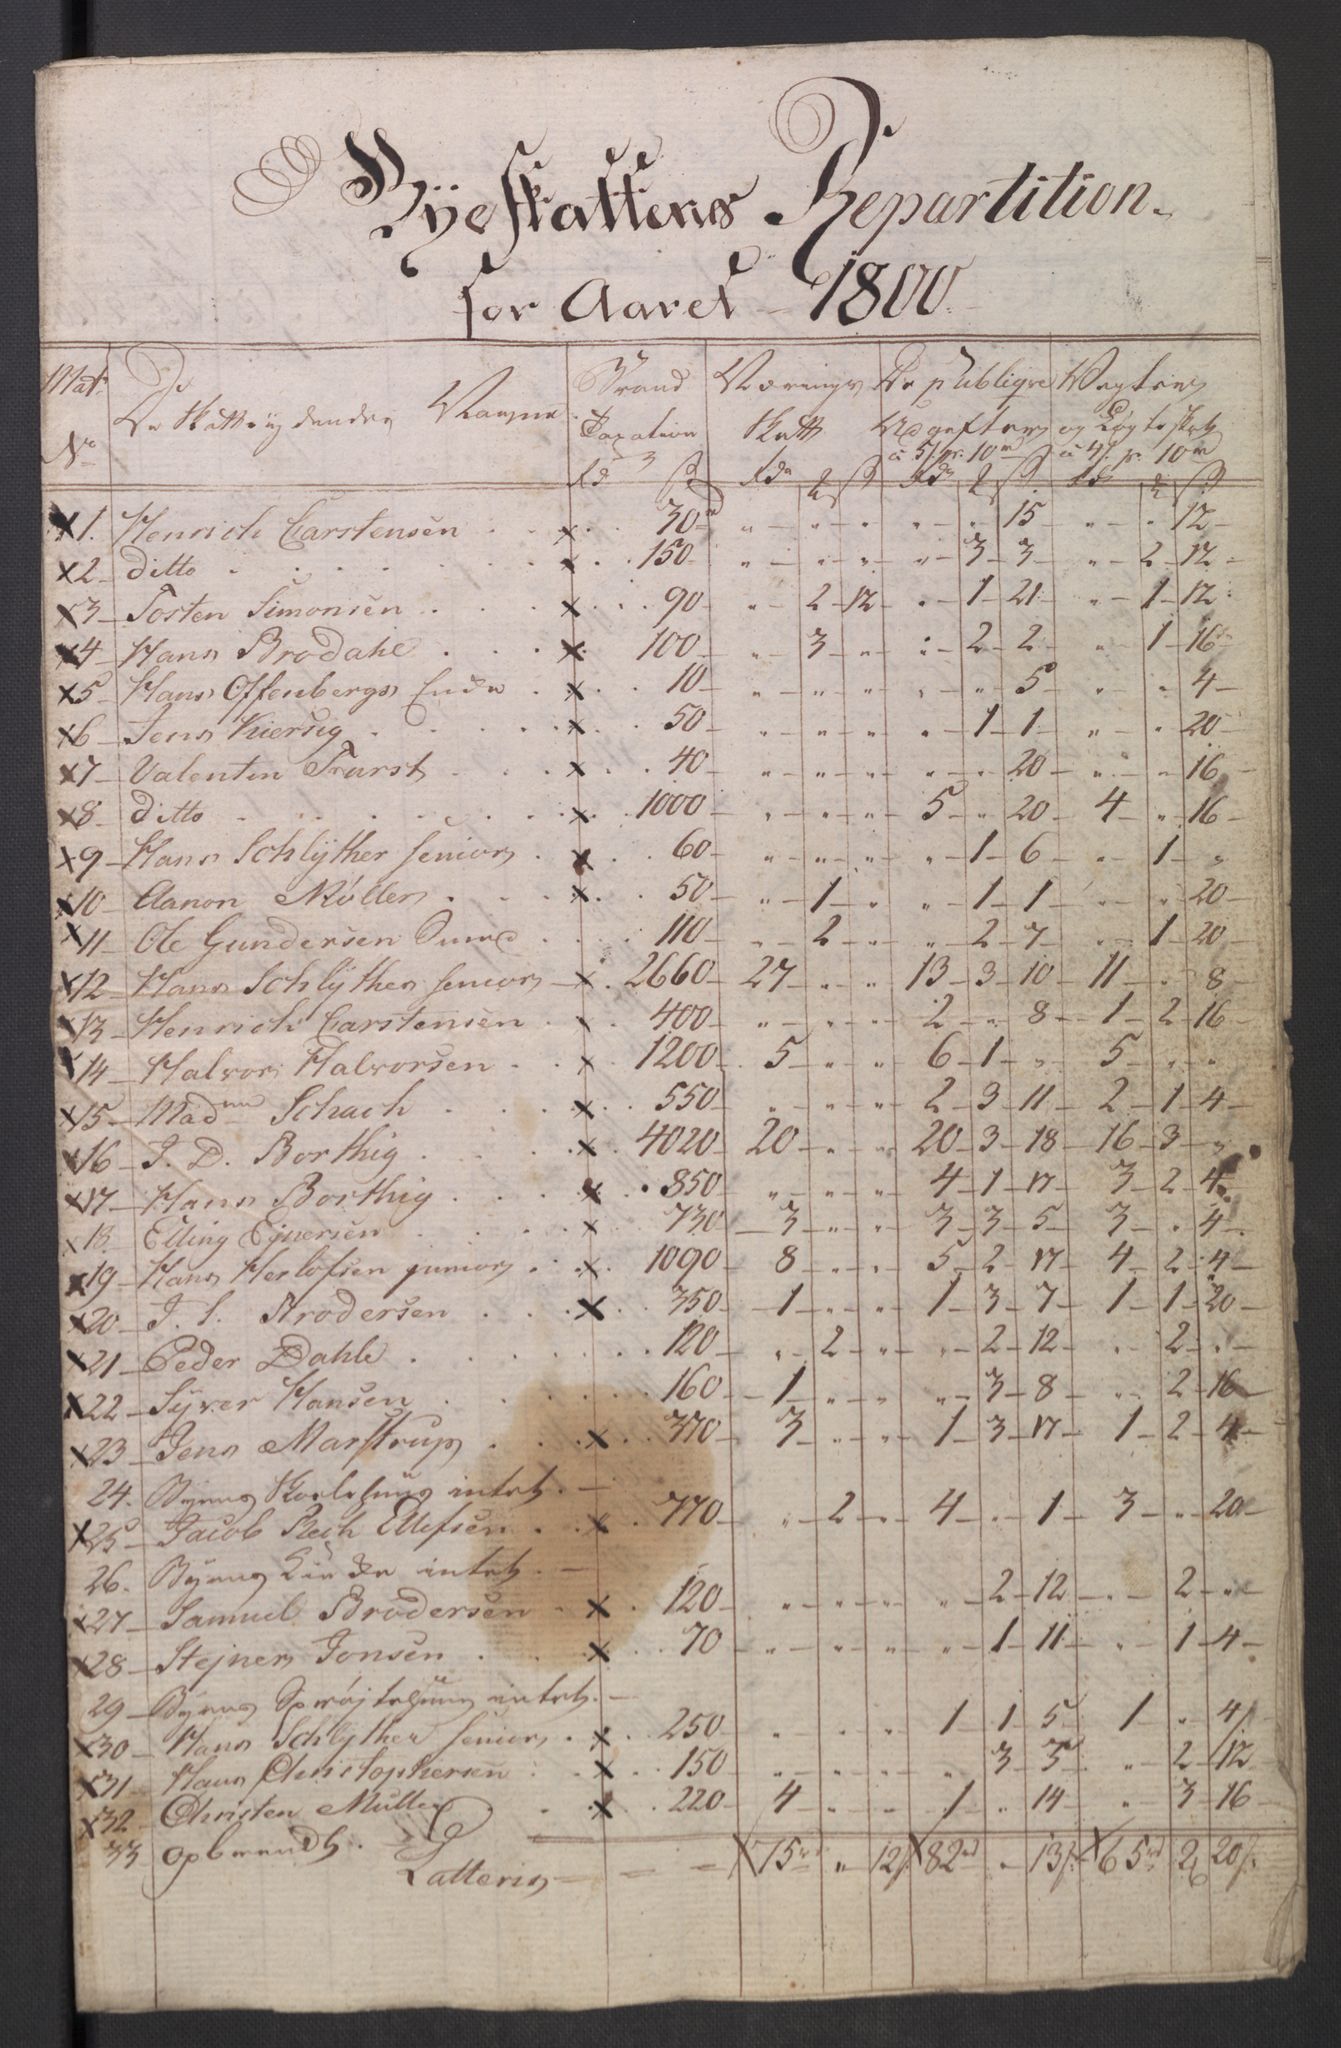 Byeskattens Repartition
for Aaret 1800
Matr No De Skatteydendes Navne Brand Taxation Nærings Skatt De publique Udgefter à 5 s. pr. 10 rd Vegter og Løgteskat à 4 s. pr. 10 rd
Rd s Rdr s Rdr s Rdr s
x1. Henrich Carstensen . . x . . 30 rd " " " " " 15 " " 12
x2 ditto . . . x . . 150 " " " " 3 3 " 2 12
x3 Tosten Simonsen . . x . . 90 " 2 12 " 1 21 " 1 12
x4 Hans Brodahl . . x . 100 " 3 " " 2 2 " 1 16
x5 Hans Offenbergs Enke . x . . 10 " " " " " 5 " " 4
x6 Jens Kiersig . . . x . . 50 " " " " 1 1 " " 20
x7 Valentin Trurst . . x . . 40 " " " " " 20 " " 16
x8 ditto . . . x . 1000 " " " 5 " 20 4 " 16
x9 Hans Schlÿther senior . x . . 60 " " " " 1 6 " 1 "
x10 Aanon Møller . . x . . 50 " 1 " " 1 1 " " 20
x11 Ole Gundersen . . . 110 " 2 " " 2 7 " 1 20
x12 Hans Schlÿther senior x . 2660 27 " " 13 3 10 11 " 8
x13 Henrich Carstensen . x . 400 " " " 2 " 8 1 2 16
x14 Halvor Halvorsen . . x . 1200 5 " " 6 1 " 5 " "
x15 Madme Schach . . x . . 550 " " " 2 3 11 2 1 4
x16 J. D. Borthig . . . x . 4020 20 " " 20 3 18 16 3 "
x17 Hans Borthig . . . x . 850 " " " 4 1 17 3 2 4
x18. Elling Ejnersen . . . x . 730 3 " " 3 3 5 3 " 4
x19 Hans Herlofsen junior . x . 1090 8 " " 5 2 17 4 2 4
x20 J. S. Brodersen . . . x . 350 1 " " 1 3 7 1 1 20
x21 Peder Dahle . . . . 120 " 2 " " 2 12 " 2 "
x22 Syver Hansen . . . . 160 1 " " " 3 8 " 2 16
x23 Jens Marstrup . . . x . 370 3 " " 1 3 17 1 2 4
24. Byens intet. —
x25 Jacob Plech Ellefsen . x . 770 " 2 " 4 " 1 3 " 20
26. Byens Kirke intet. —
x27 Samuel Brodersen x . 120 " " " " 2 12 " 2 "
x28 Stejner Jonsen . . x . 70 " " " " 1 11 " 1 4
29 Byens Sprøjtehuus intet. —
x30 Hans Schlÿther senior . x . 250 " " " 1 1 5 1 " 4
x31 Hans Christophersen . x . 150 " " " " 3 3 " 2 12
x32 Christen Muller . x . 220 4 " " 1 " 14 " 3 16
33 opbrendt.
Latteris — — — x75 rd " 12 s x82 rd " 13 s x65 rd 2 20 s.